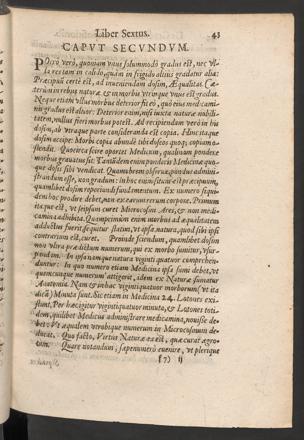 Liber Sextus. 43
CAPVT SECVNDVM.
Porrò verò, quoniam vnus solummodò gradus est, nec vl-
la etiam in calido, quàm in frigido altius gradatur alia:
Præcipuū certè est, ad inueniendum dosim, Æqualitat. Cæ-
terùm in reb9 natura & in morbis vtrimque vnus est gradus.
Neque etiam vllus morbus deterior fit eò, quò eius medicami-
nis gradus est altior: Deterior enim, nisi iuxta naturæ nihili-
tatem, nullus fieri morbus potest. Ad recipiendum verò in his
dosim, ab vtraque parte consideranda est copia. Hinc itaque
dosim accipe: Morbi copia abundè tibi dosis quoq; copiam o-
stendit. Quocirca scire oportet Medicum, qualinam pondere
morbus grauatus sit: Tantūdem enim pondecis Medicinæ quo-
que dosis sibi vendicat. Quamobrem obserua, pondus admini-
strandum esse, non gradum: in hoc enim sicut est præcipuum,
quamlibet dosim reperiundi fundamentum. Ex numero siqui-
dem hoc prodire debet, non ex earum rerum corpore. Primum
itaque est, vt scipsum curet Microcosmi Ares, & non medi-
camina adhibita. Quampri­mùm enim morbus ad æqualitatem
adductus fuerit sequitur statim, vt ipsa natura, quod sibi ipsi
contrarium est, curet. Proinde sciendum, quamlibet dosim
non vltra prædictum numerum, qui ex morbo sumitur, vsur-
pandam. In ipsa namque natura viginti quatuor comprehen-
duntur: In quo numero etiam Medicina ipsa sumi debet, vt
quemcunque numerum attigerit, adem ex Naturæ sumatur
Anatomia. Nam & in hac viginti quatuor morborum (vt ita
dicā) Minuta sunt. Sic etiam in Medicina 24. Latones exi-
stunt. Per hæc igitur viginti quatuor minuta, & Latones toti-
dem, quilibet Medicus administrare medicamina, nouisse de-
bet: Vt æqualem vtrobique numerum in Microcosmum de-
ducat. Quo facto, Virtus Naturæ ea est, quæ curat ægro-
tum. Quare notandum, sæpenumerò euenire, vt plerique
(7) ij